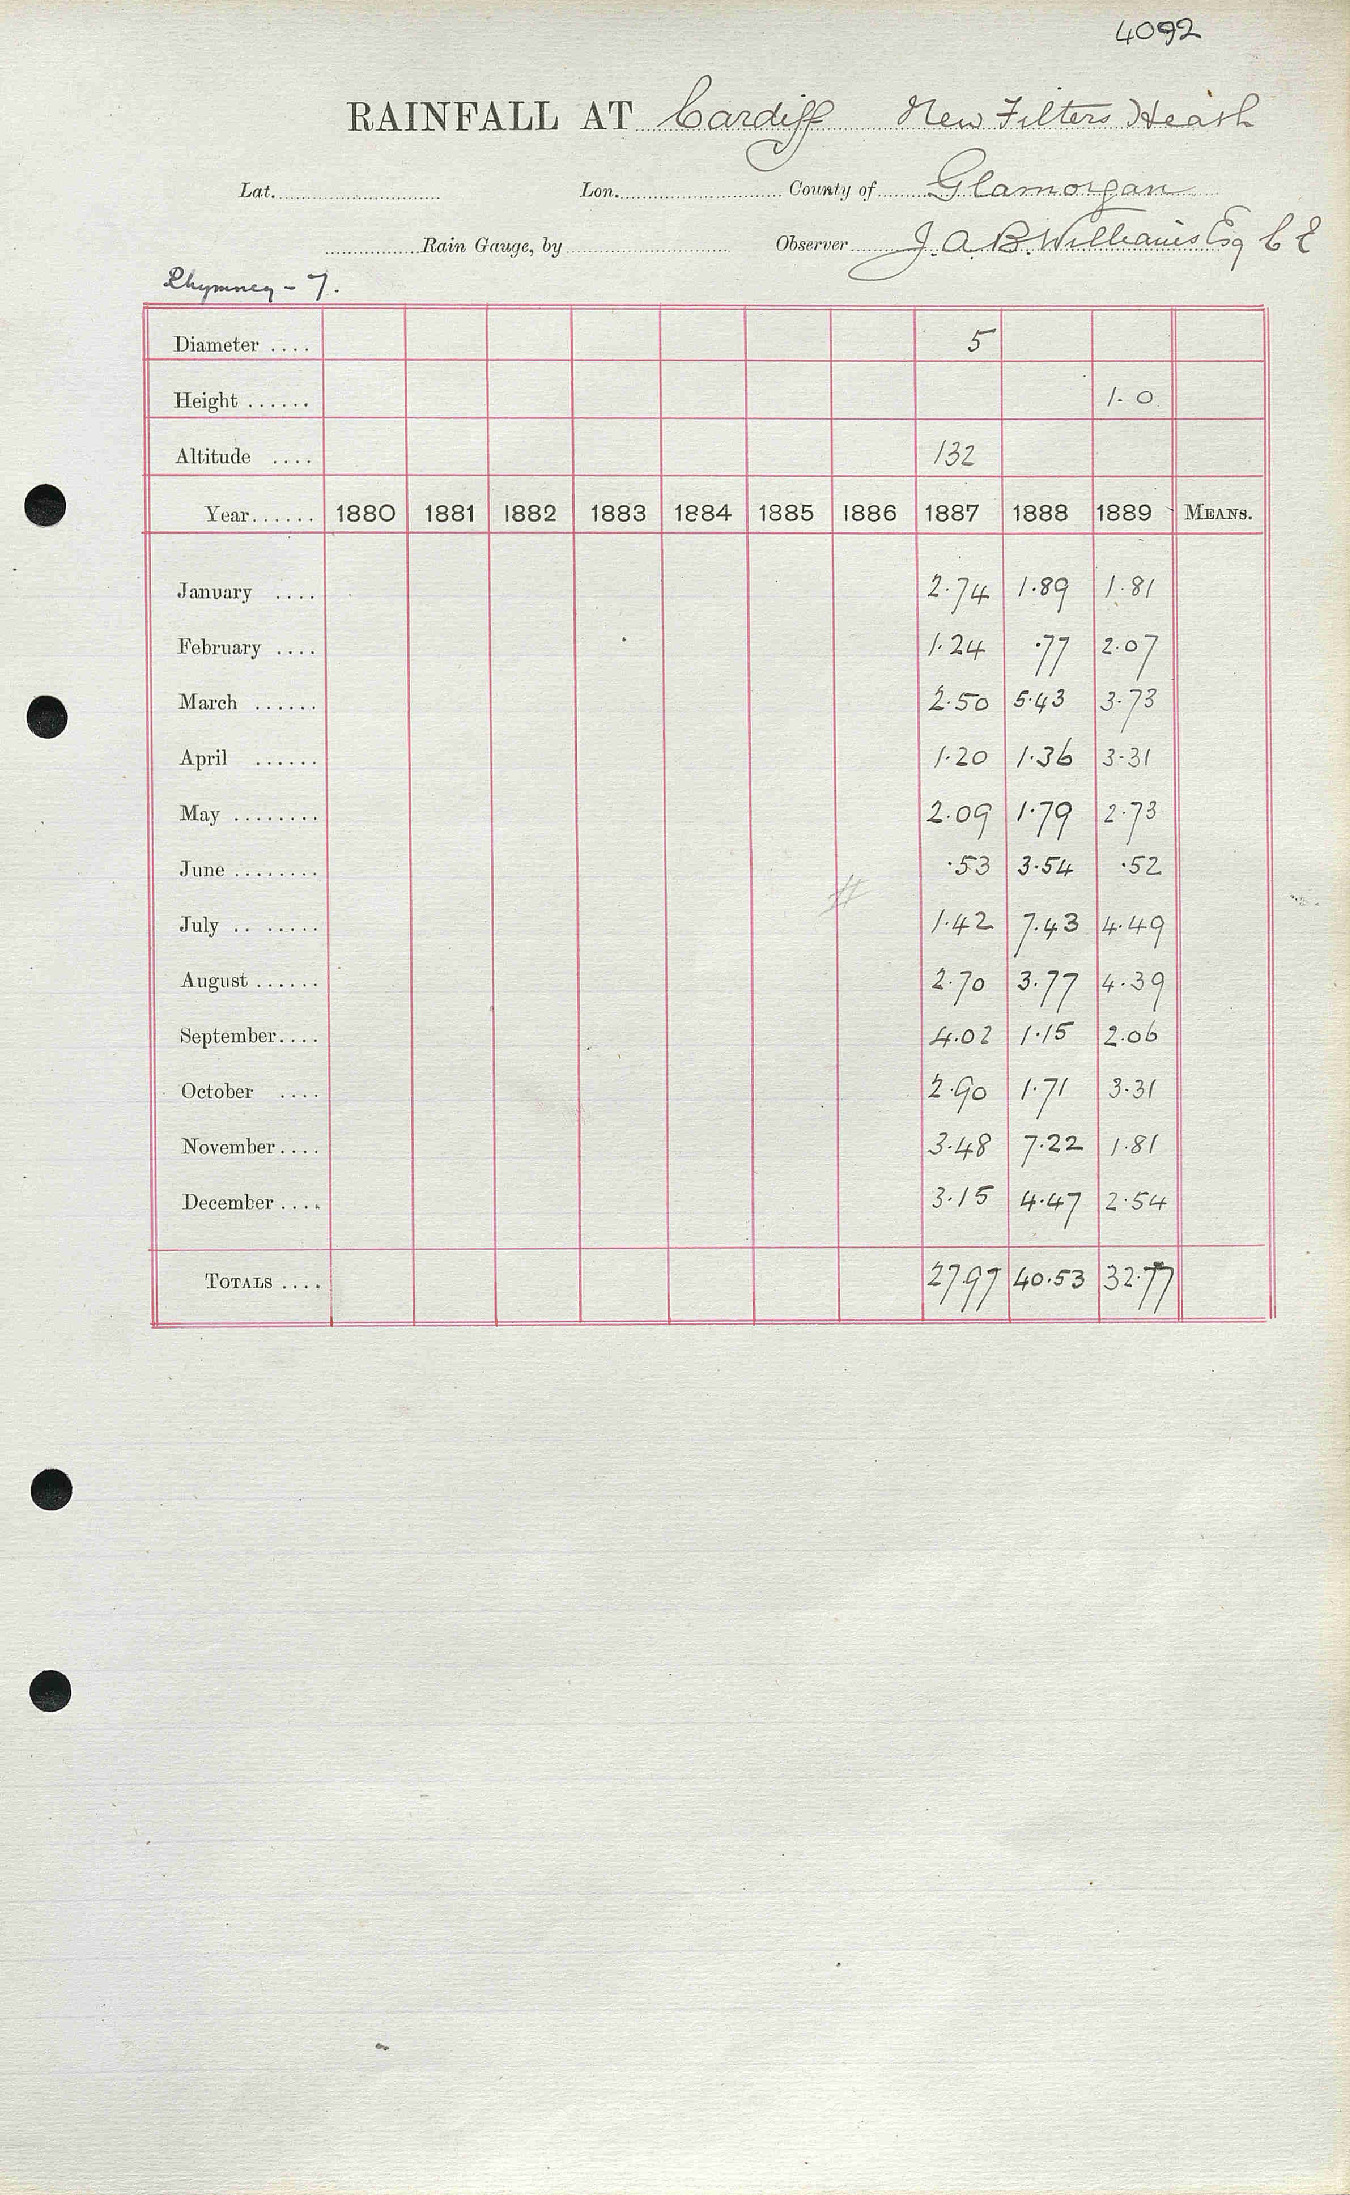 4092
RAINFALL AT Cardiff New Filters Heath
Lat. Lon. County of Glamorgan
Rain Gauge, by Observer J. A. B. Williams Esq C E
Rhymney - 7.
Diameter .... 5
Height ...... 1. 0
Altitude .... 132
Year...... 1880 1881 1882 1883 1884 1885 1886 1887 1888 1889 MEANS.
January .... 2.74 1.89 1.81
February .... 1.24 .77 2.07
March ...... 2.50 5.43 3.73
April ...... 1.20 1.36 3.31
May ........ 2.09 1.79 2.73
June ........ .53 3.54 .52
July .. ...... 1.42 7.43 4.49
August ...... 2.70 3.77 4.39
September.... 4.02 1.15 2.06
October .... 2.90 1.71 3.31
November.... 3.48 7.22 1.81
December .... 3.15 4.47 2.54
TOTALS .... 27.97 40.53 32.77